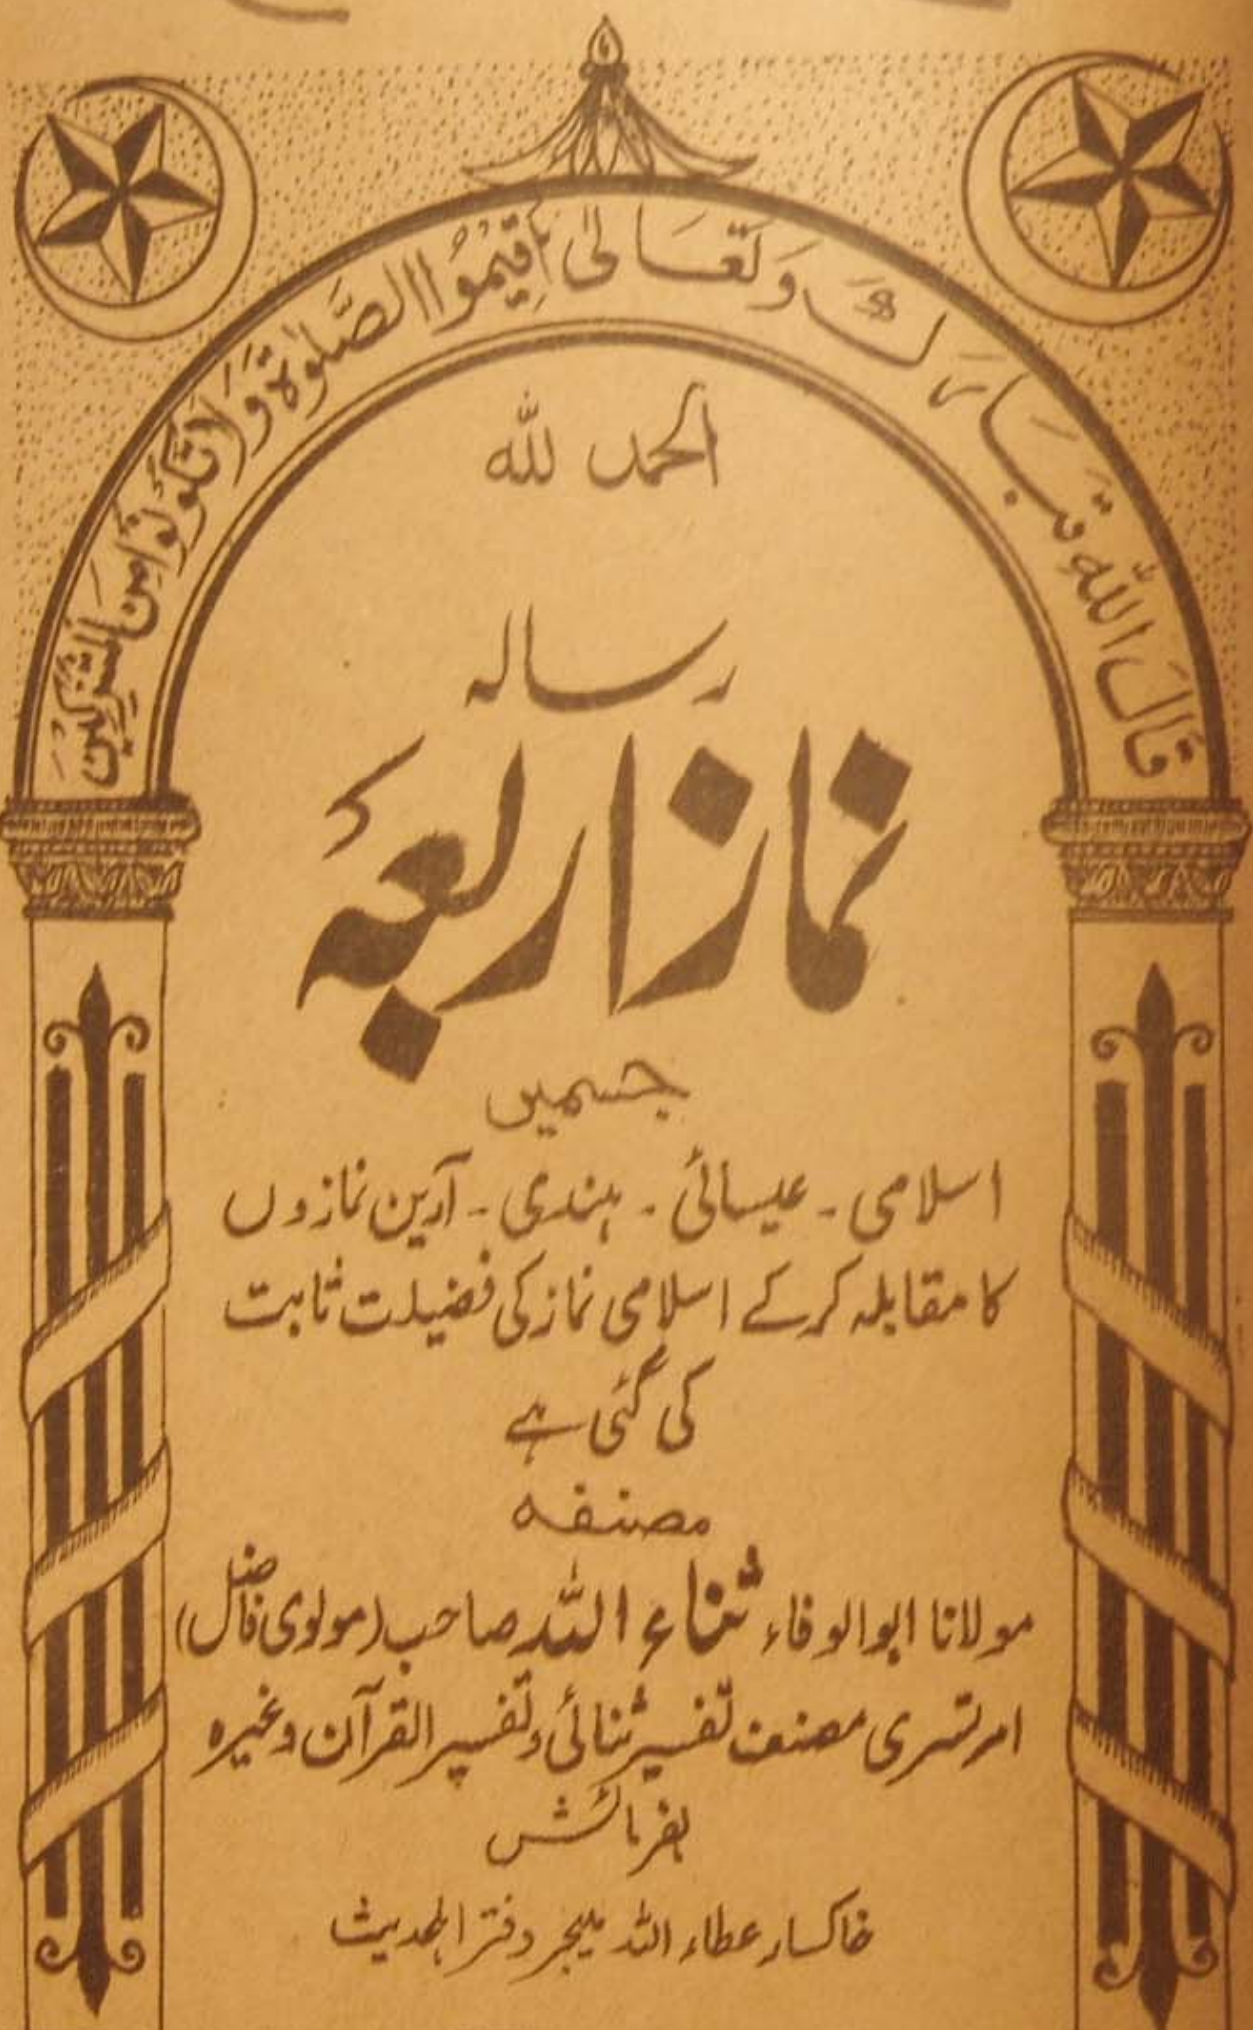 قَالَ اللّٰهُ تَبَارَكَ وَتَعَالٰی أَقِيمُوا الصَّلٰوةَ وَلَا تَكُونُوا مِنَ الْمُشْرِكِينَ
الحمد للہ
رسالہ
نماز اربعہ
جسمیں
اسلامی - عیسائی - ہندی - آرین نمازوں
کا مقابلہ کرکے اسلامی نماز کی فضیلت ثابت
کی گئی ہے
مصنفہ
مولانا ابوالوفاء ثناء اللہ صاحب (مولوی فاضل)
امرتسری مصنف تفسیر ثنائی و تفسیر القرآن وغیرہ
بفرمائش
خاکسار عطاء اللہ منیجر دفتر اہلحدیث